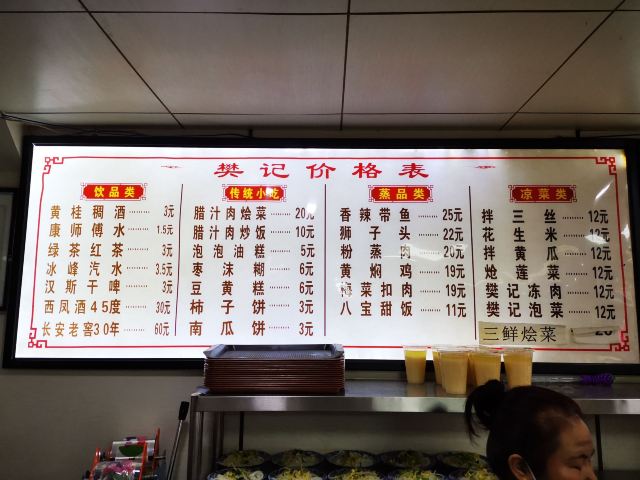 樊记价格表
饮品类
黄桂稠酒……… 3元
康师傅水……… 1.5元
绿茶红茶……… 3元
冰峰汽水……… 3.5元
汉斯干啤……… 3元
西凤酒45度……… 30元
长安老窖30年……… 60元
传统小吃
腊汁肉烩菜……… 20元
腊汁肉炒饭……… 10元
泡泡油糕……… 5元
枣沫糊……… 6元
豆黄糕……… 6元
柿子饼……… 3元
南瓜饼……… 3元
蒸品类
香辣带鱼……… 25元
狮子头……… 22元
粉蒸肉……… 20元
黄焖鸡……… 19元
菜扣肉……… 19元
八宝甜饭……… 11元
凉菜类
拌三丝……… 12元
花生米……… 12元
拌黄瓜……… 12元
炝莲菜……… 12元
樊记冻肉……… 12元
樊记泡菜……… 12元
三鲜烩菜